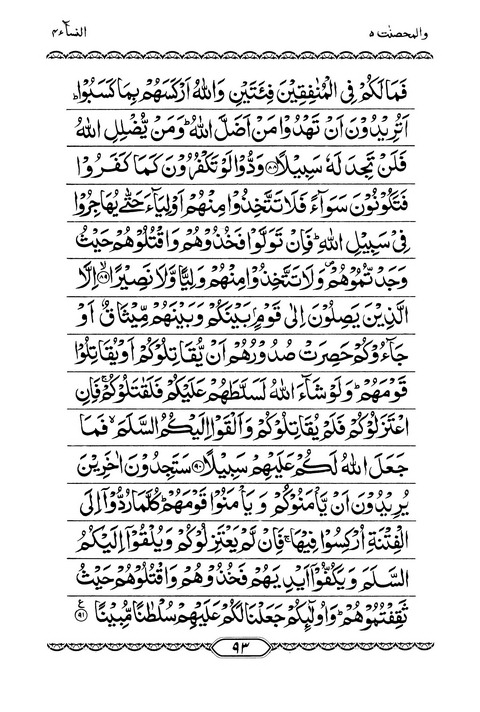 والمحصنٰت ٥
النسآء ٤
فَمَا لَكُمْ فِى الْمُنٰفِقِيْنَ فِئَتَيْنِ وَاللّٰهُ اَرْكَسَهُمْ بِمَا كَسَبُوْا ؕ
اَتُرِيْدُوْنَ اَنْ تَهْدُوْا مَنْ اَضَلَّ اللّٰهُ ؕ وَمَنْ يُّضْلِلِ اللّٰهُ
فَلَنْ تَجِدَ لَهٗ سَبِيْلًا ﴿۸۸﴾ وَدُّوْا لَوْ تَكْفُرُوْنَ كَمَا كَفَرُوْا
فَتَكُوْنُوْنَ سَوَآءً فَلَا تَتَّخِذُوْا مِنْهُمْ اَوْلِيَآءَ حَتّٰى يُهَاجِرُوْا
فِىْ سَبِيْلِ اللّٰهِ ؕ فَاِنْ تَوَلَّوْا فَخُذُوْهُمْ وَاقْتُلُوْهُمْ حَيْثُ
وَجَدْتُّمُوْهُمْ ۪ وَلَا تَتَّخِذُوْا مِنْهُمْ وَلِيًّا وَّلَا نَصِيْرًا ﴿۸۹﴾ۙ اِلَّا
الَّذِيْنَ يَصِلُوْنَ اِلٰى قَوْمٍۭ بَيْنَكُمْ وَبَيْنَهُمْ مِّيْثَاقٌ اَوْ
جَآءُوْكُمْ حَصِرَتْ صُدُوْرُهُمْ اَنْ يُّقَاتِلُوْكُمْ اَوْ يُقَاتِلُوْا
قَوْمَهُمْ ؕ وَلَوْ شَآءَ اللّٰهُ لَسَلَّطَهُمْ عَلَيْكُمْ فَلَقٰتَلُوْكُمْ ۚ فَاِنِ
اعْتَزَلُوْكُمْ فَلَمْ يُقَاتِلُوْكُمْ وَاَلْقَوْا اِلَيْكُمُ السَّلَمَ ۙ فَمَا
جَعَلَ اللّٰهُ لَكُمْ عَلَيْهِمْ سَبِيْلًا ﴿۹۰﴾ سَتَجِدُوْنَ اٰخَرِيْنَ
يُرِيْدُوْنَ اَنْ يَّاْمَنُوْكُمْ وَيَاْمَنُوْا قَوْمَهُمْ ؕ كُلَّمَا رُدُّوْۤا اِلَى
الْفِتْنَةِ اُرْكِسُوْا فِيْهَا ۚ فَاِنْ لَّمْ يَعْتَزِلُوْكُمْ وَيُلْقُوْۤا اِلَيْكُمُ
السَّلَمَ وَيَكُفُّوْۤا اَيْدِيَهُمْ فَخُذُوْهُمْ وَاقْتُلُوْهُمْ حَيْثُ
ثَقِفْتُمُوْهُمْ ؕ وَاُولٰٓئِكُمْ جَعَلْنَا لَكُمْ عَلَيْهِمْ سُلْطٰنًا مُّبِيْنًا ﴿۹۱﴾ ع
۹۳